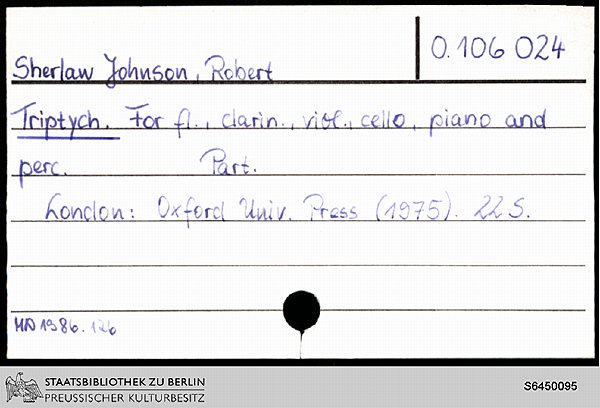 O.106 024
Sherlaw Johnson, Robert
Triptych. For fl., clarin., viol., cello, piano and
perc. Part.
London: Oxford Univ. Press (1975). 22 S.
MD 1986.126
STAATSBIBLIOTHEK ZU BERLIN
PREUSSISCHER KULTURBESITZ
S6450095